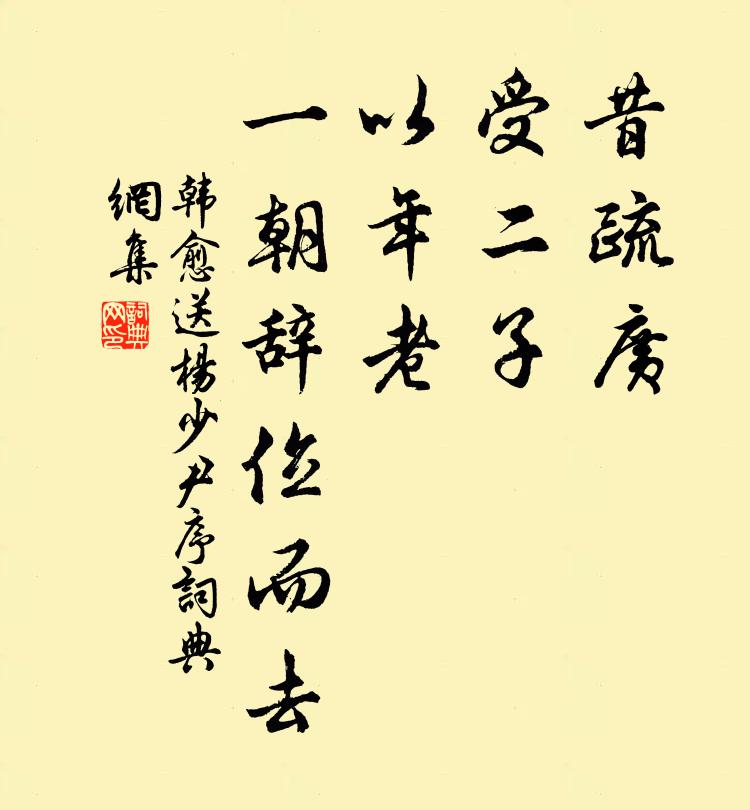 昔疏廣
受二子
以年老
一朝辞位而去
韩愈送楊少尹序詞典
網集
詞典
网印